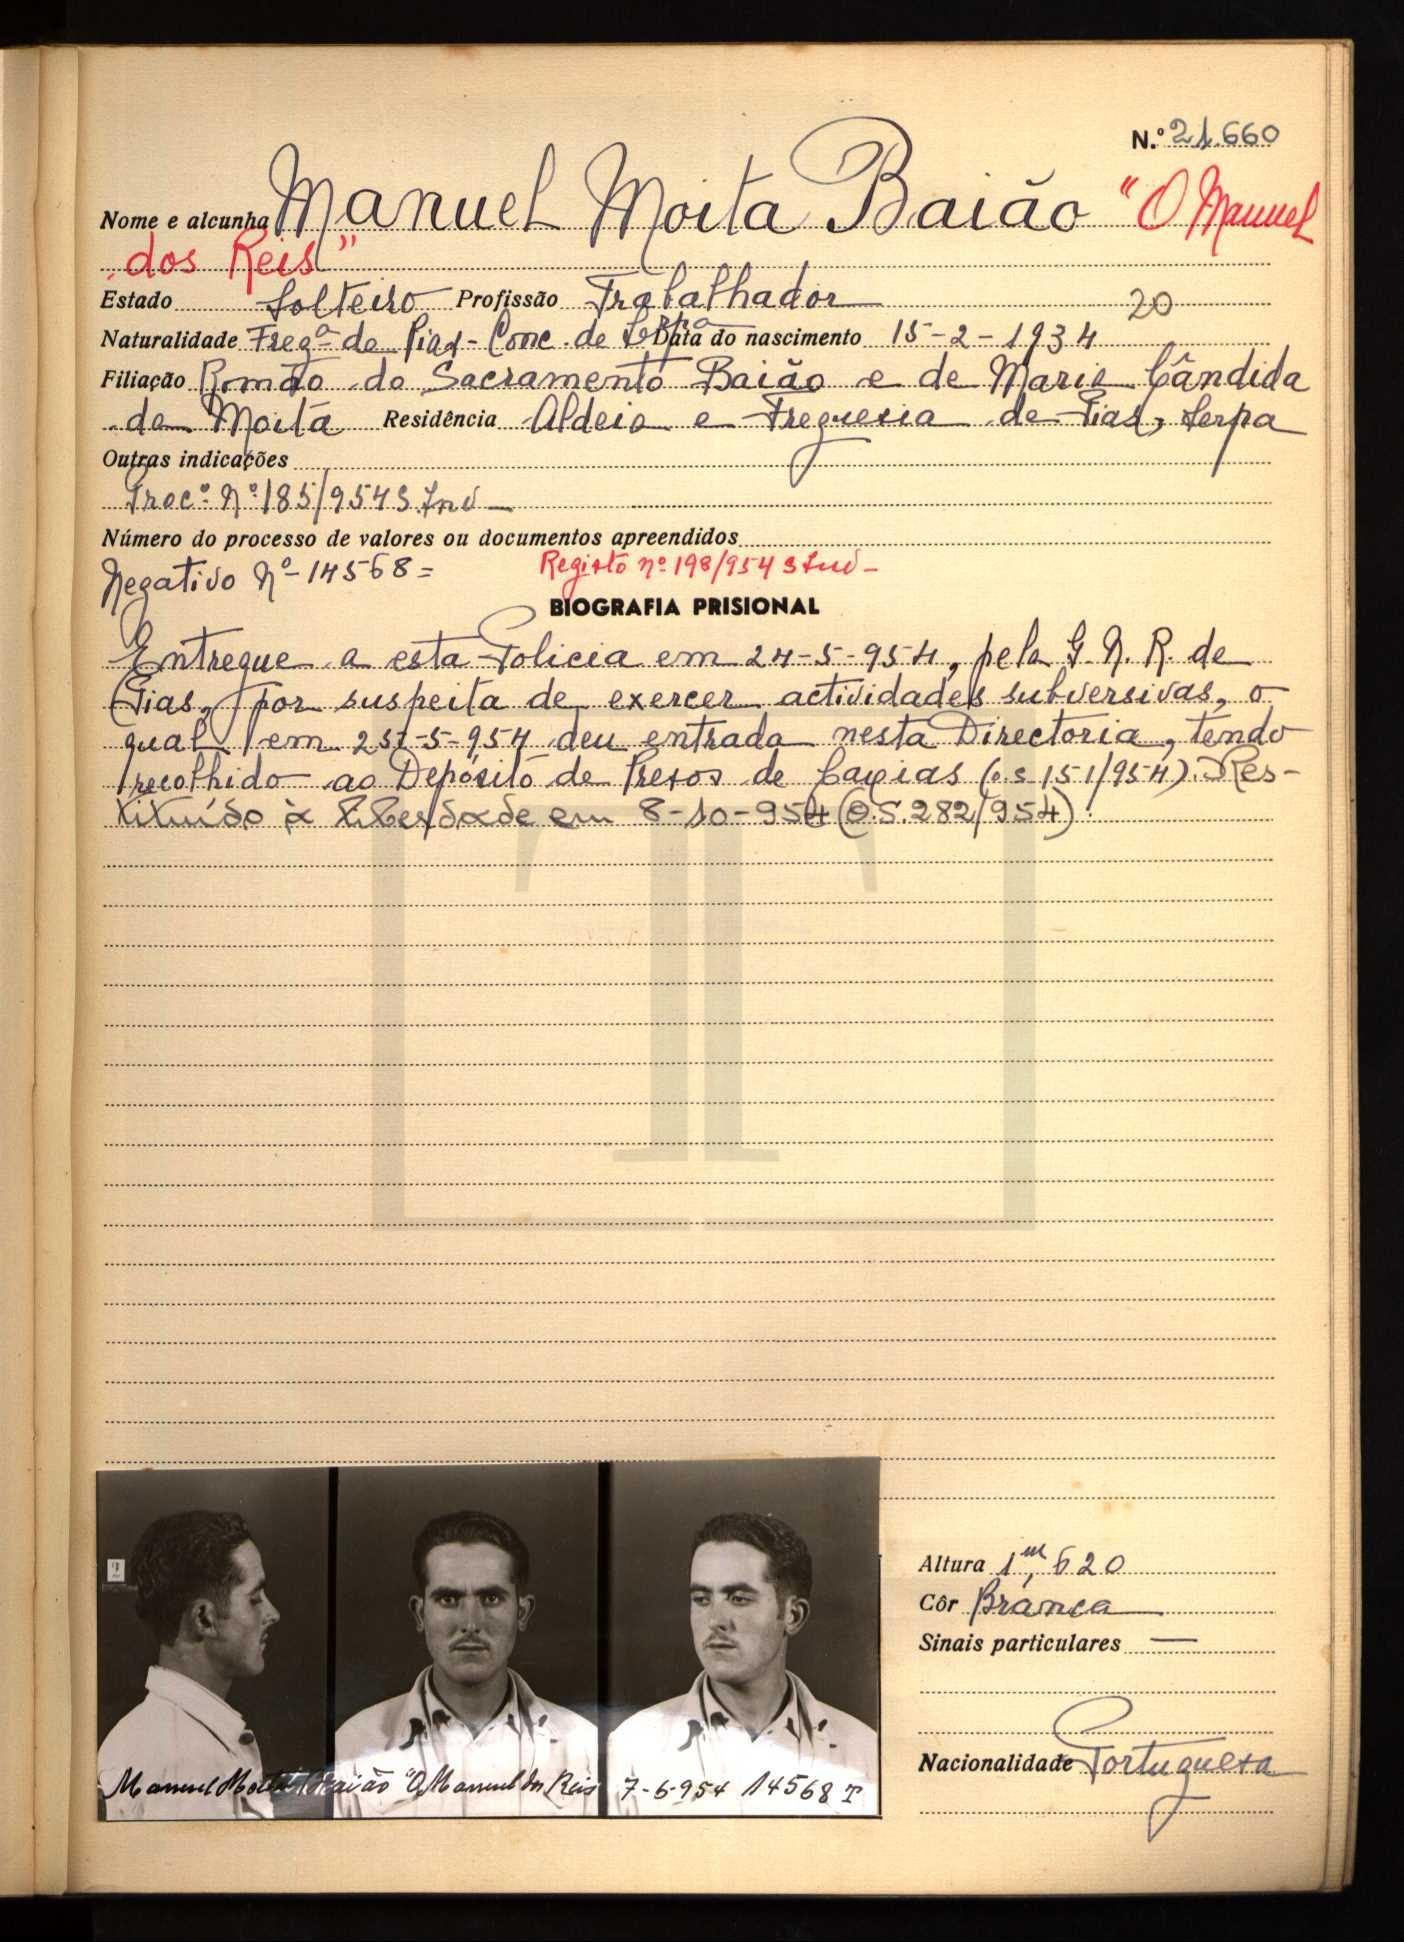 N.º 21.660
Nome e alcunha Manuel Moita Baião "O Manuel
dos Reis"
Estado Solteiro Profissão Trabalhador 20
Naturalidade Fregª de Pias - Conc. de Serpa Data do nascimento 15-2-1934
Filiação Romão do Sacramento Baião e de Maria Cândida
da Moita Residência Aldeia e Freguesia de Pias, Serpa
Outras indicações
Procº. Nº 185/954 S. Inv
Número do processo de valores ou documentos apreendidos
Negativo Nº 14568= Registo nº 198/954 S Inv-
BIOGRAFIA PRISIONAL
Entregue a esta Policia em 24-5-954, pela G. N. R. de
Pias, por suspeita de exercer actividades subversivas, o
qual em 25-5-954 deu entrada nesta Directoria, tendo
recolhido ao Depósito de Presos de Caxias (o.s 151/954). Res-
tituído à liberdade em 8-10-954 (O.S. 282/954).
Altura 1m,620
Côr Branca
Sinais particulares —
Nacionalidade Portuguesa
Manuel Moita Baião "O Manuel dos Reis 7-6-954 14568 T